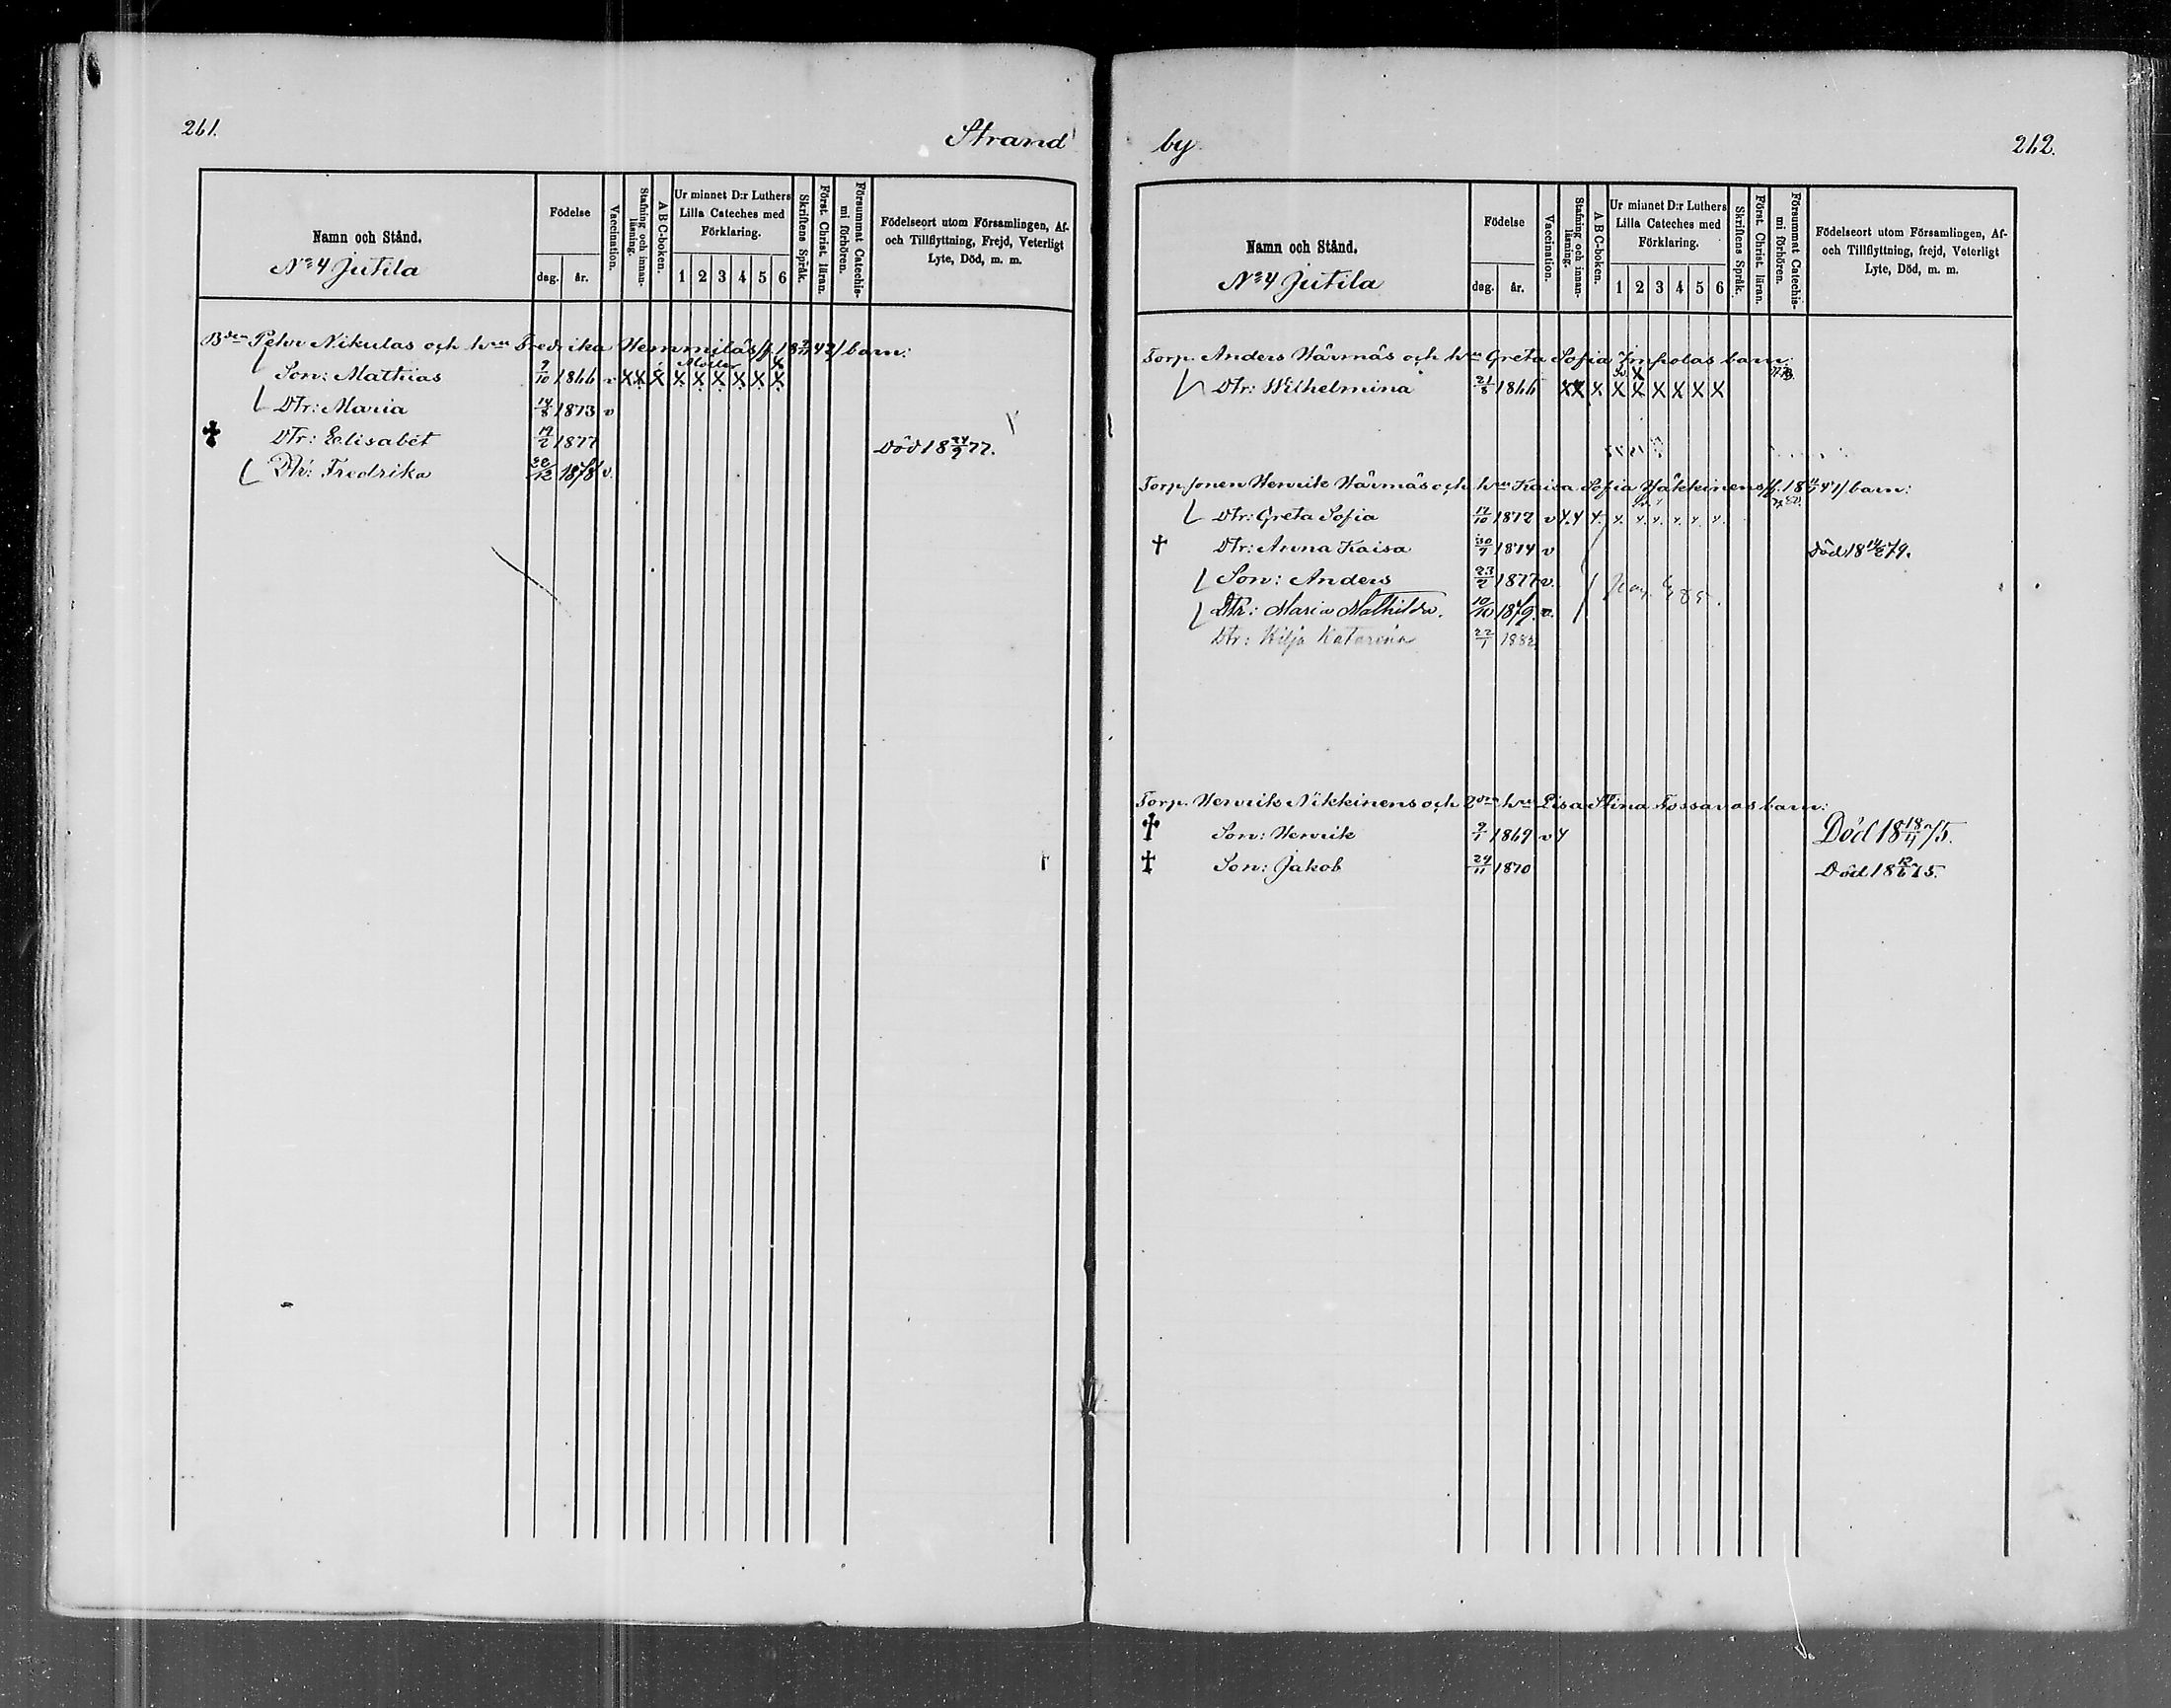 261.
Strand
Namn och Stånd.
No 4 Jutila
Födelse
dag. år.
Vaccination.
Stafning och innan-läsning.
A B C-boken.
Ur minnet D:r Luthers Lilla Cateches med Förklaring.
1 2 3 4 5 6
Skriftens Språk.
Först. Christ. läran.
Försummat Catechis-mi förhören.
Födelseort utom Församlingen, Af- och Tillflyttning, Frejd, Veterligt Lyte, Död, m. m.
Bden Petter Nikulas och hrn Fredrika Hemmiläs barn:
Son: Mathias 9/10 1866 v x x x x x x x x x
Dtr: Maria 14/8 1873 v
Dtr: Elisabet 17/2 1877 Död 18 24/9 77.
Dtr: Fredrika 30/12 1878 v.
by
262.
Namn och Stånd.
No 4 Jutila
Födelse
dag. år.
Vaccination.
Stafning och innan-läsning.
A B C-boken.
Ur minnet D:r Luthers Lilla Cateches med Förklaring.
1 2 3 4 5 6
Skriftens Språk.
Först. Christ. läran.
Försummat Catechis-mi förhören.
Födelseort utom Församlingen, Af- och Tillflyttning, frejd, Veterligt Lyte, Död, m. m.
Torp. Anders Härmäs och hrn Greta Sofia Impolas barn:
Dtr: Wilhelmina 21/8 1866 x x x x x x x x x
Torp. sonen Henrik Härmäs och hrn Kaisa Sofia barn:
Dtr: Greta Sofia 17/10 1872 v
Dtr: Anna Kaisa 30/7 1874 v Död 18 79.
Son: Anders 23/2 1877 v.
Dtr: Maria Mathilda. 10/10 1879. v.
Dtr: Hilja Katarina 22/1 1882
Torp. Henrik Nikkinens och 2dra hrn Lisa Stina Tossavas barn:
Son: Henrik 9/1 1869 v
Död 18 18/11 75.
Son: Jakob 24/11 1870
Död 18 12/6 75.